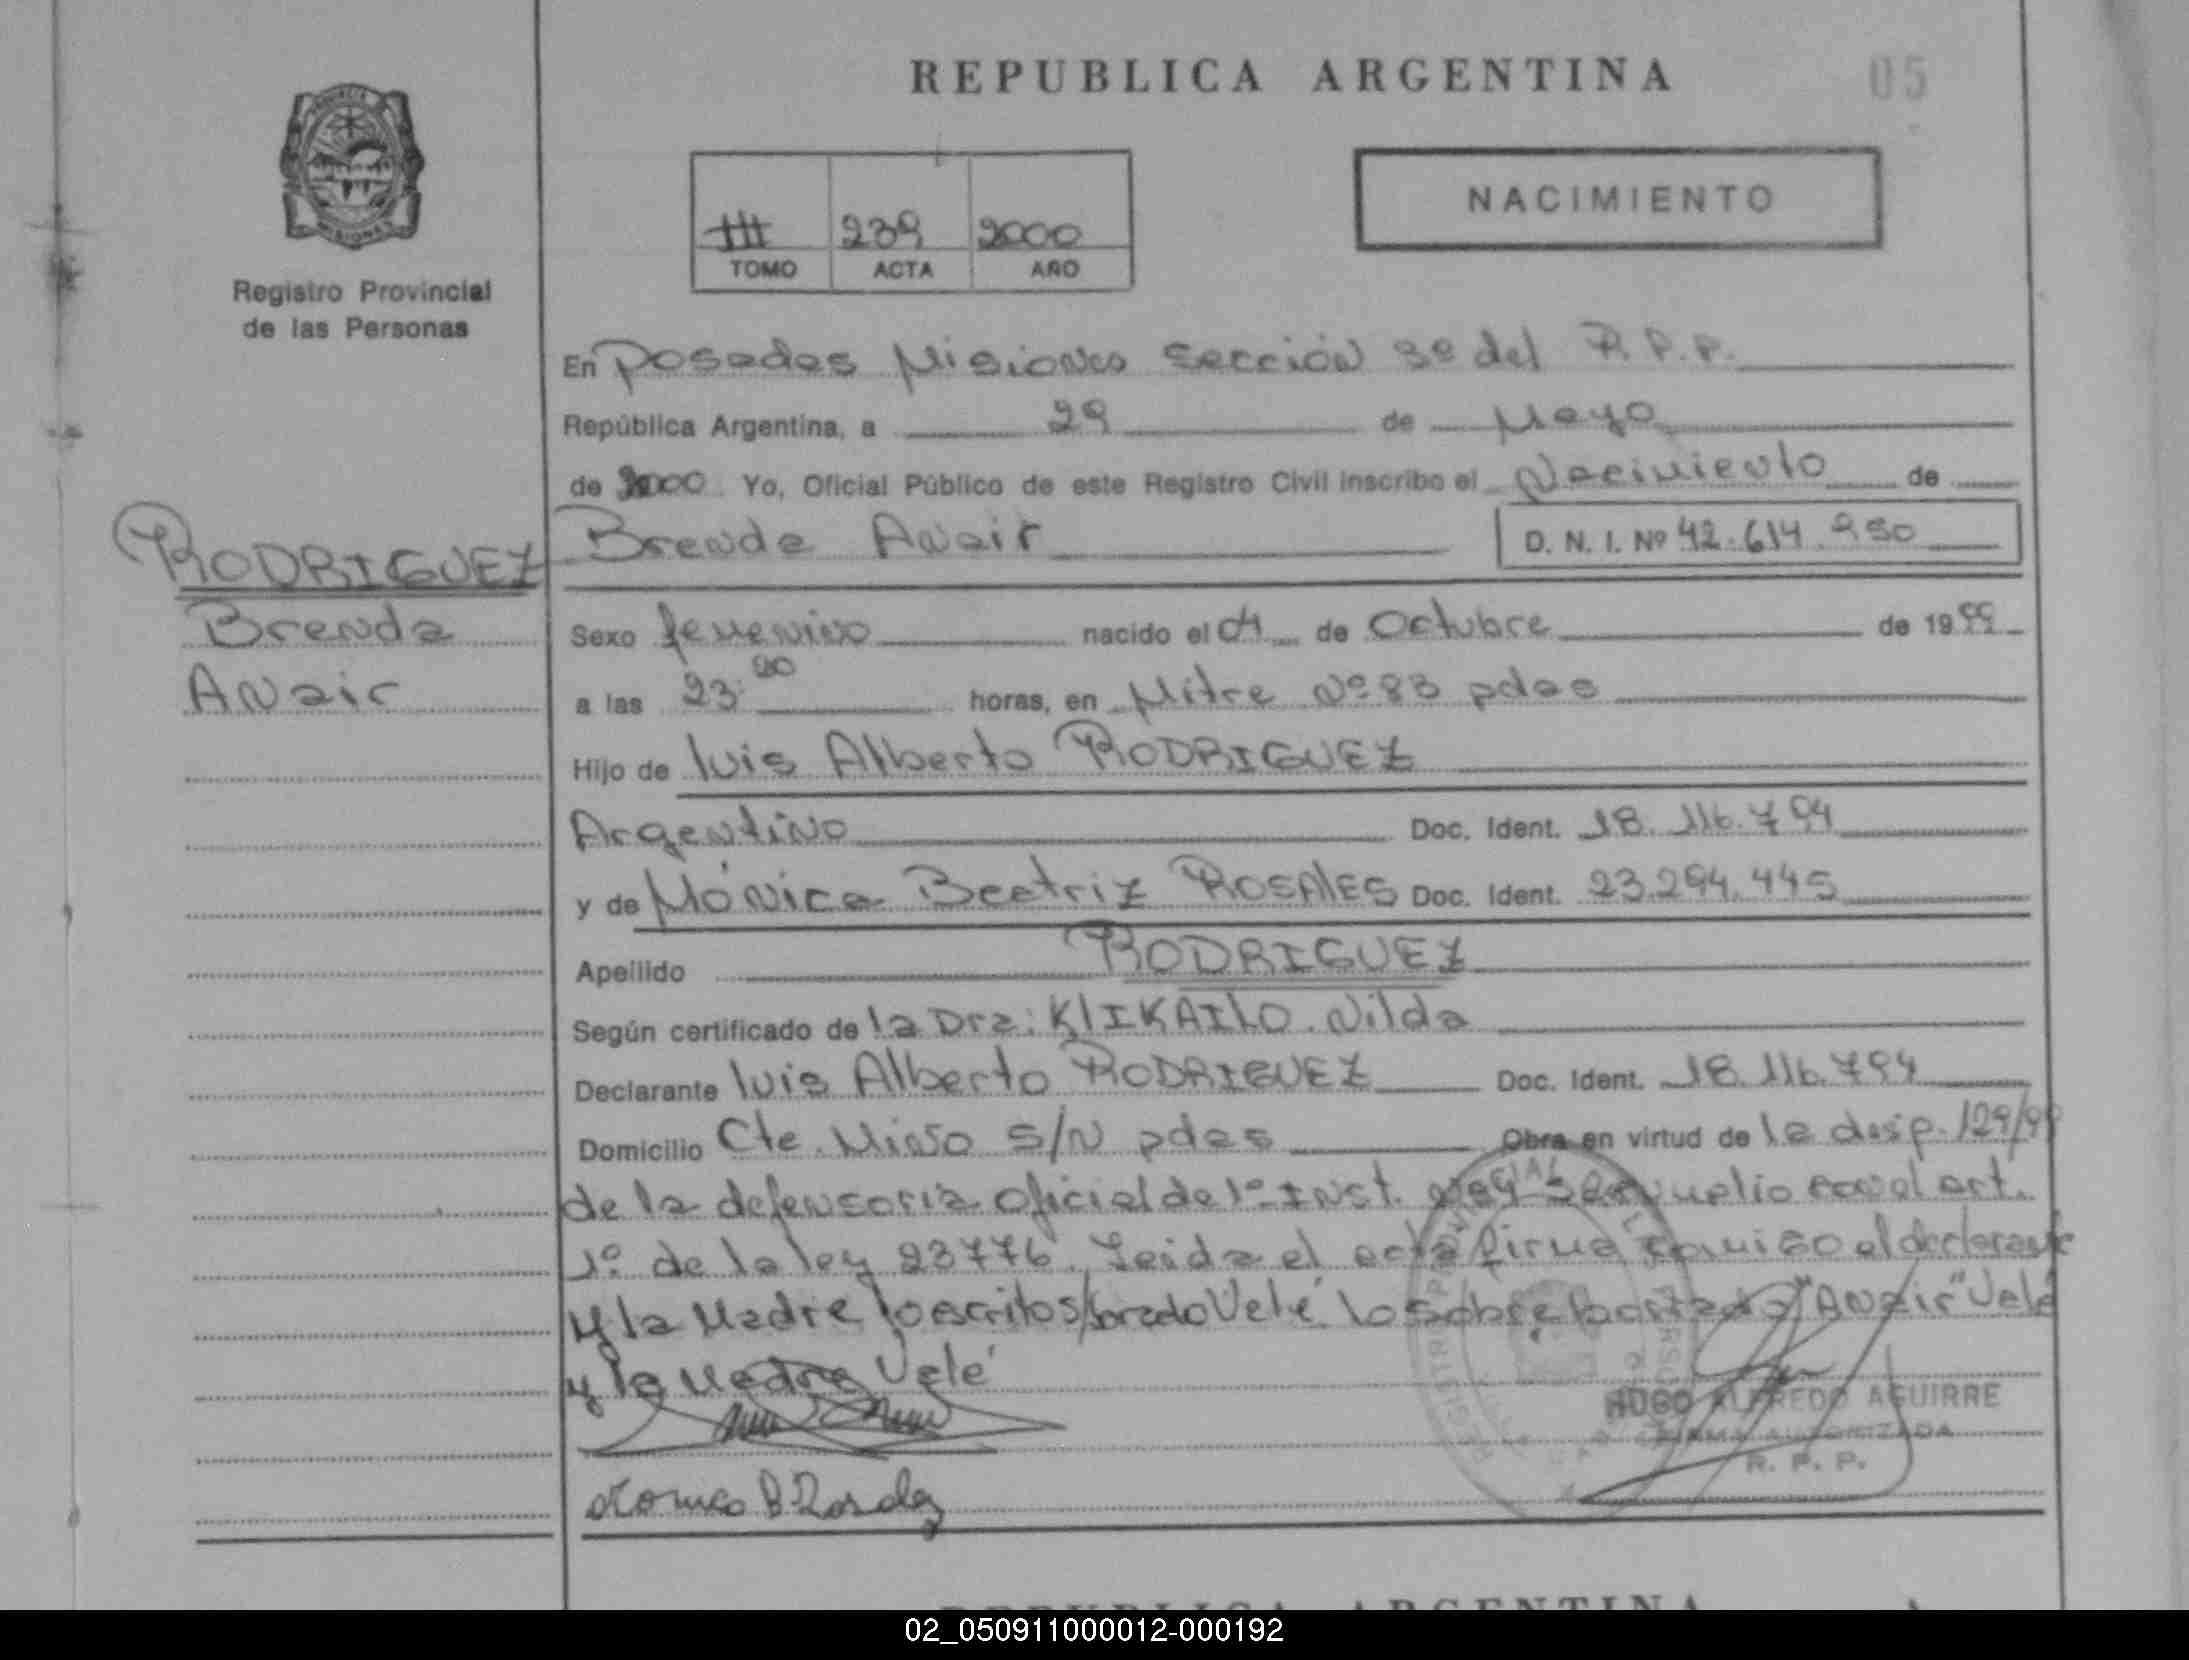 REPUBLICA ARGENTINA
05
PROVINCIA
MISIONES
Registro Provincial
de las Personas
III 239 2000
TOMO ACTA AÑO
NACIMIENTO
En Posadas Misiones Sección 3º del R.P.P.
República Argentina, a 29 de Mayo
de 2000 Yo, Oficial Público de este Registro Civil inscribo el Nacimiento de
Brenda Anair D. N. I. Nº 42.614.950
RODRIGUEZ
Brenda
Anair
Sexo femenino nacido el 04 de Octubre de 1999
a las 23:20 horas, en Mitre Nº 83 pdas
Hijo de luis Alberto RODRIGUEZ
Argentino Doc. Ident. 18.116.794
y de Mónica Beatriz ROSAlES Doc. Ident. 23.294.445
Apellido RODRIGUEZ
Según certificado de la Dra: KlIKAIlO. Nilda
Declarante luis Alberto RODRIGUEZ Doc. Ident. 18.116.794
Domicilio Cte. Miño s/N pdas Obra en virtud de la disp. 129/99
de la defensoria oficial de 1º INst. cumplio con el art.
1º de la ley 23776. Leida el acta firma conmigo el declarante
y la Madre lo escrito s/borrado Vale lo sobre borrado "Anair" Vale
y la Madre Vale
Monica B Rosales
HUGO ALFREDO AGUIRRE
FIRMA AUTORIZADA
R. P. P.
REPUBLICA ARGENTINA
02_050911000012-000192